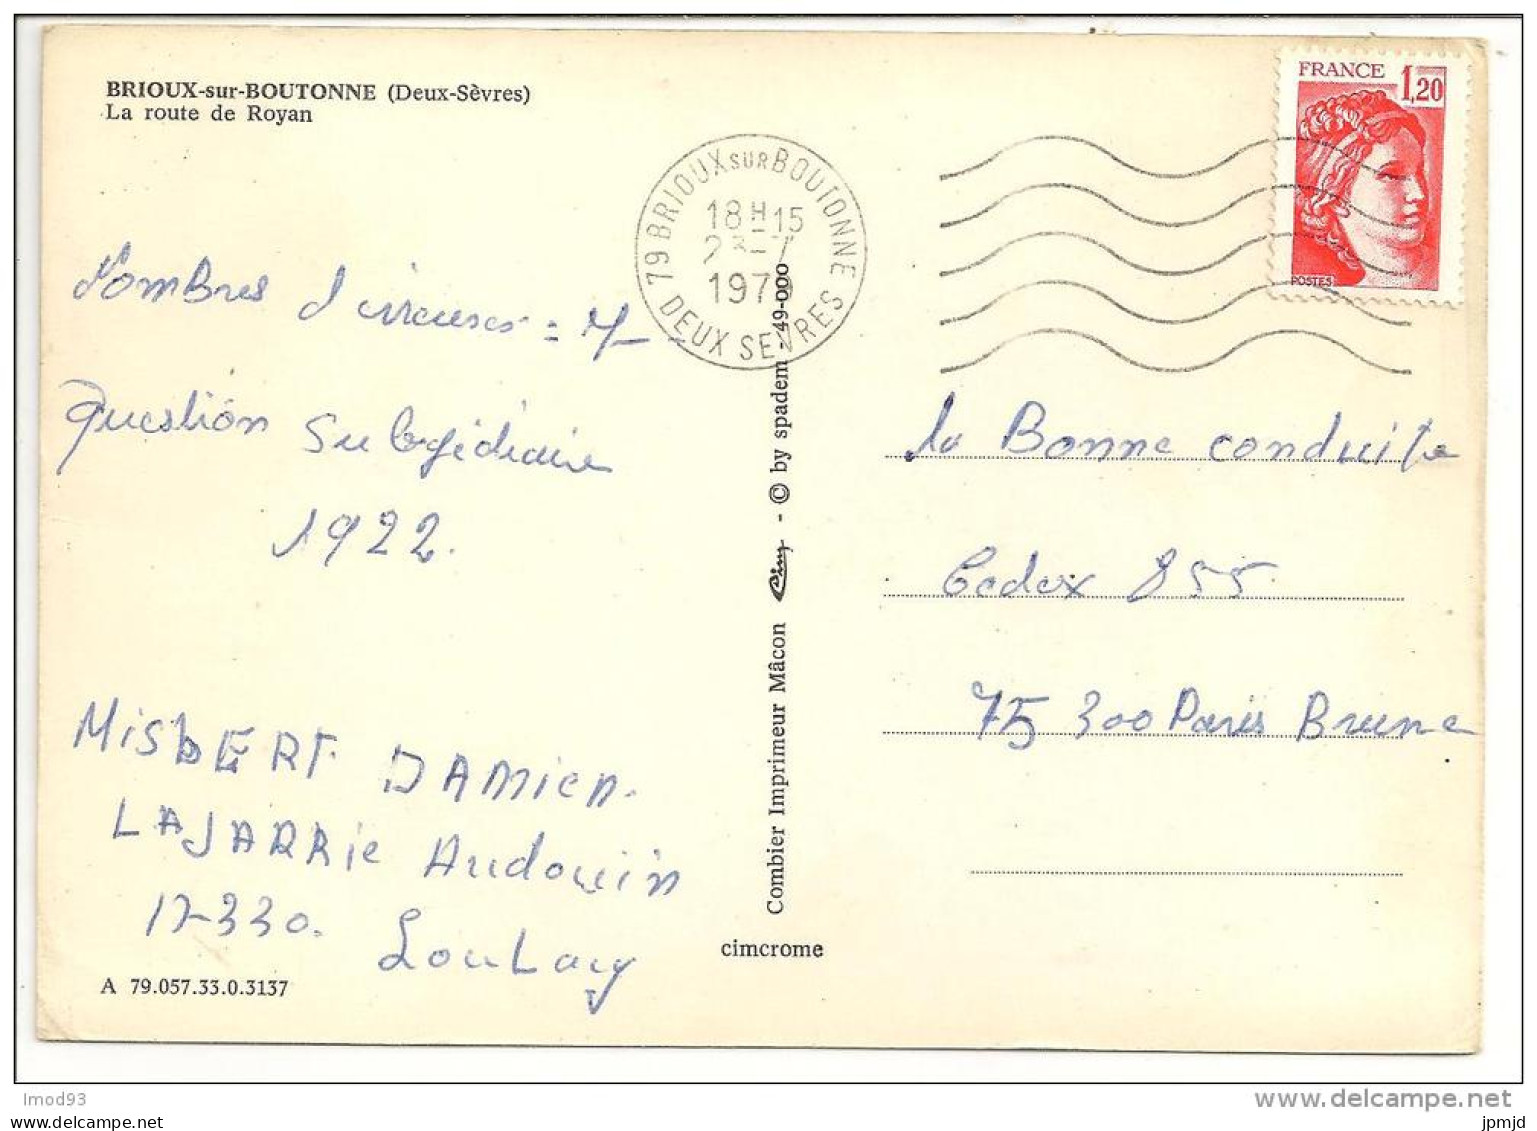 BRIOUX-sur-BOUTONNE (Deux-Sèvres)
La route de Royan
FRANCE 1,20
POSTES
79 BRIOUX SUR BOUTONNE
18H15
23-7
1979
DEUX SEVRES
Nombres d'
Question Subsidiaire
1922.
MISBERT DAMien.
LAJARRie Audouin
17-330.
LouLay
A 79.057.33.0.3137
Combier Imprimeur Mâcon Cim - © by spadem - 49-000
cimcrome
la Bonne conduite
Cedex 855
75 300 Paris Brune
lmod93
www.delcampe.net
www.delcampe.net
jpmjd